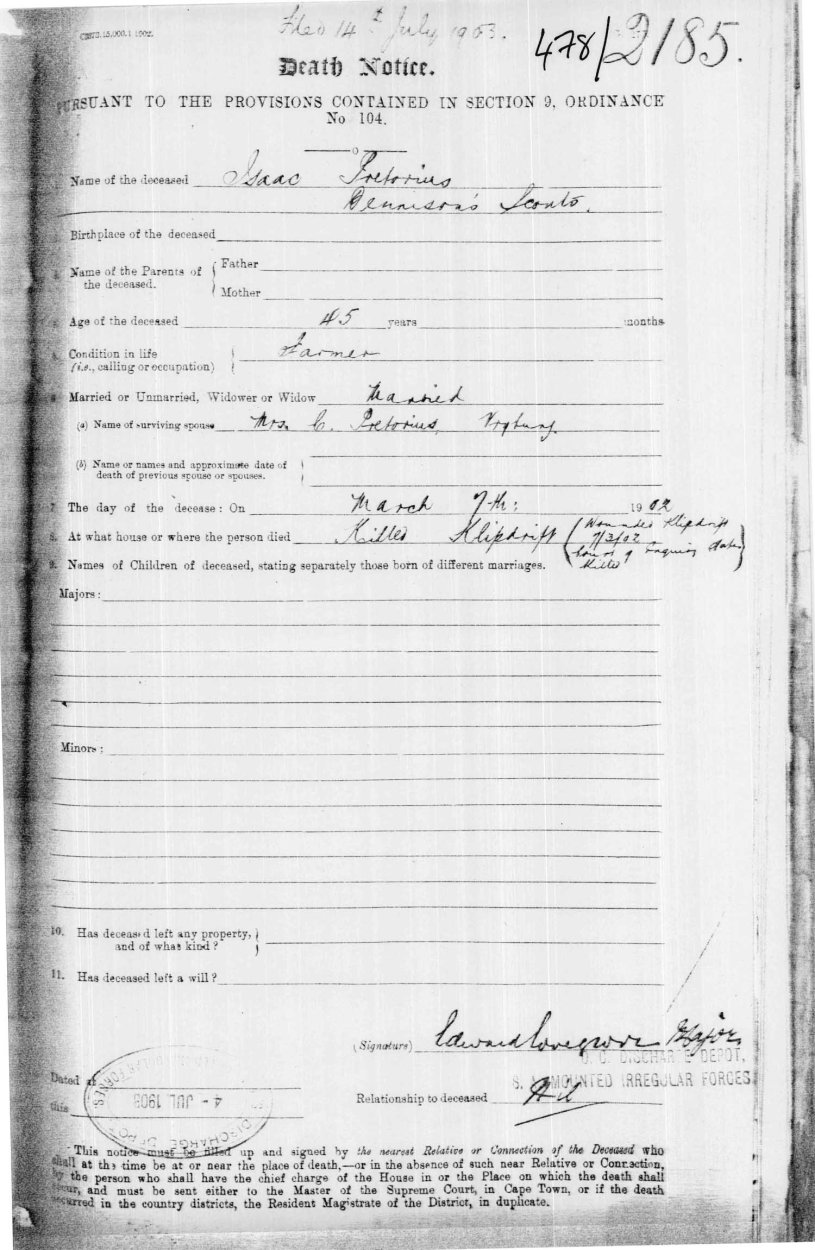 Filed 14th July 1903.
478/2185.
Death Notice.
PURSUANT TO THE PROVISIONS CONTAINED IN SECTION 9, ORDINANCE
No 104.
Name of the deceased Isaac Pretorius
Dennison's Scouts.
Birthplace of the deceased
Name of the Parents of the deceased. Father
Mother
Age of the deceased 45 years months
Condition in life Farmer
(i.e., calling or occupation)
Married or Unmarried, Widower or Widow Married
(a) Name of surviving spouse Mrs. C. Pretorius, Vryburg.
(b) Name or names and approximate date of
death of previous spouse or spouses.
7. The day of the decease: On March 7th: 1902
8. At what house or where the person died Killed Klipdrift (Wounded Klipdrift
7/3/02
Court of Enquiry states
Killed)
9. Names of Children of deceased, stating separately those born of different marriages.
Majors:
Minors:
10. Has deceased left any property,
and of what kind?
11. Has deceased left a will?
(Signature) Edward Lovegrove Major
O. C. DISCHARGE DEPOT,
S. A. MOUNTED IRREGULAR FORCES
Dated at
this
4 - JUL 1903
DISCHARGE DEPOT
Relationship to deceased Nil
This notice must be filled up and signed by the nearest Relative or Connection of the Deceased who
shall at the time be at or near the place of death,—or in the absence of such near Relative or Connection,
by the person who shall have the chief charge of the House in or the Place on which the death shall
occur, and must be sent either to the Master of the Supreme Court, in Cape Town, or if the death
occurred in the country districts, the Resident Magistrate of the District, in duplicate.